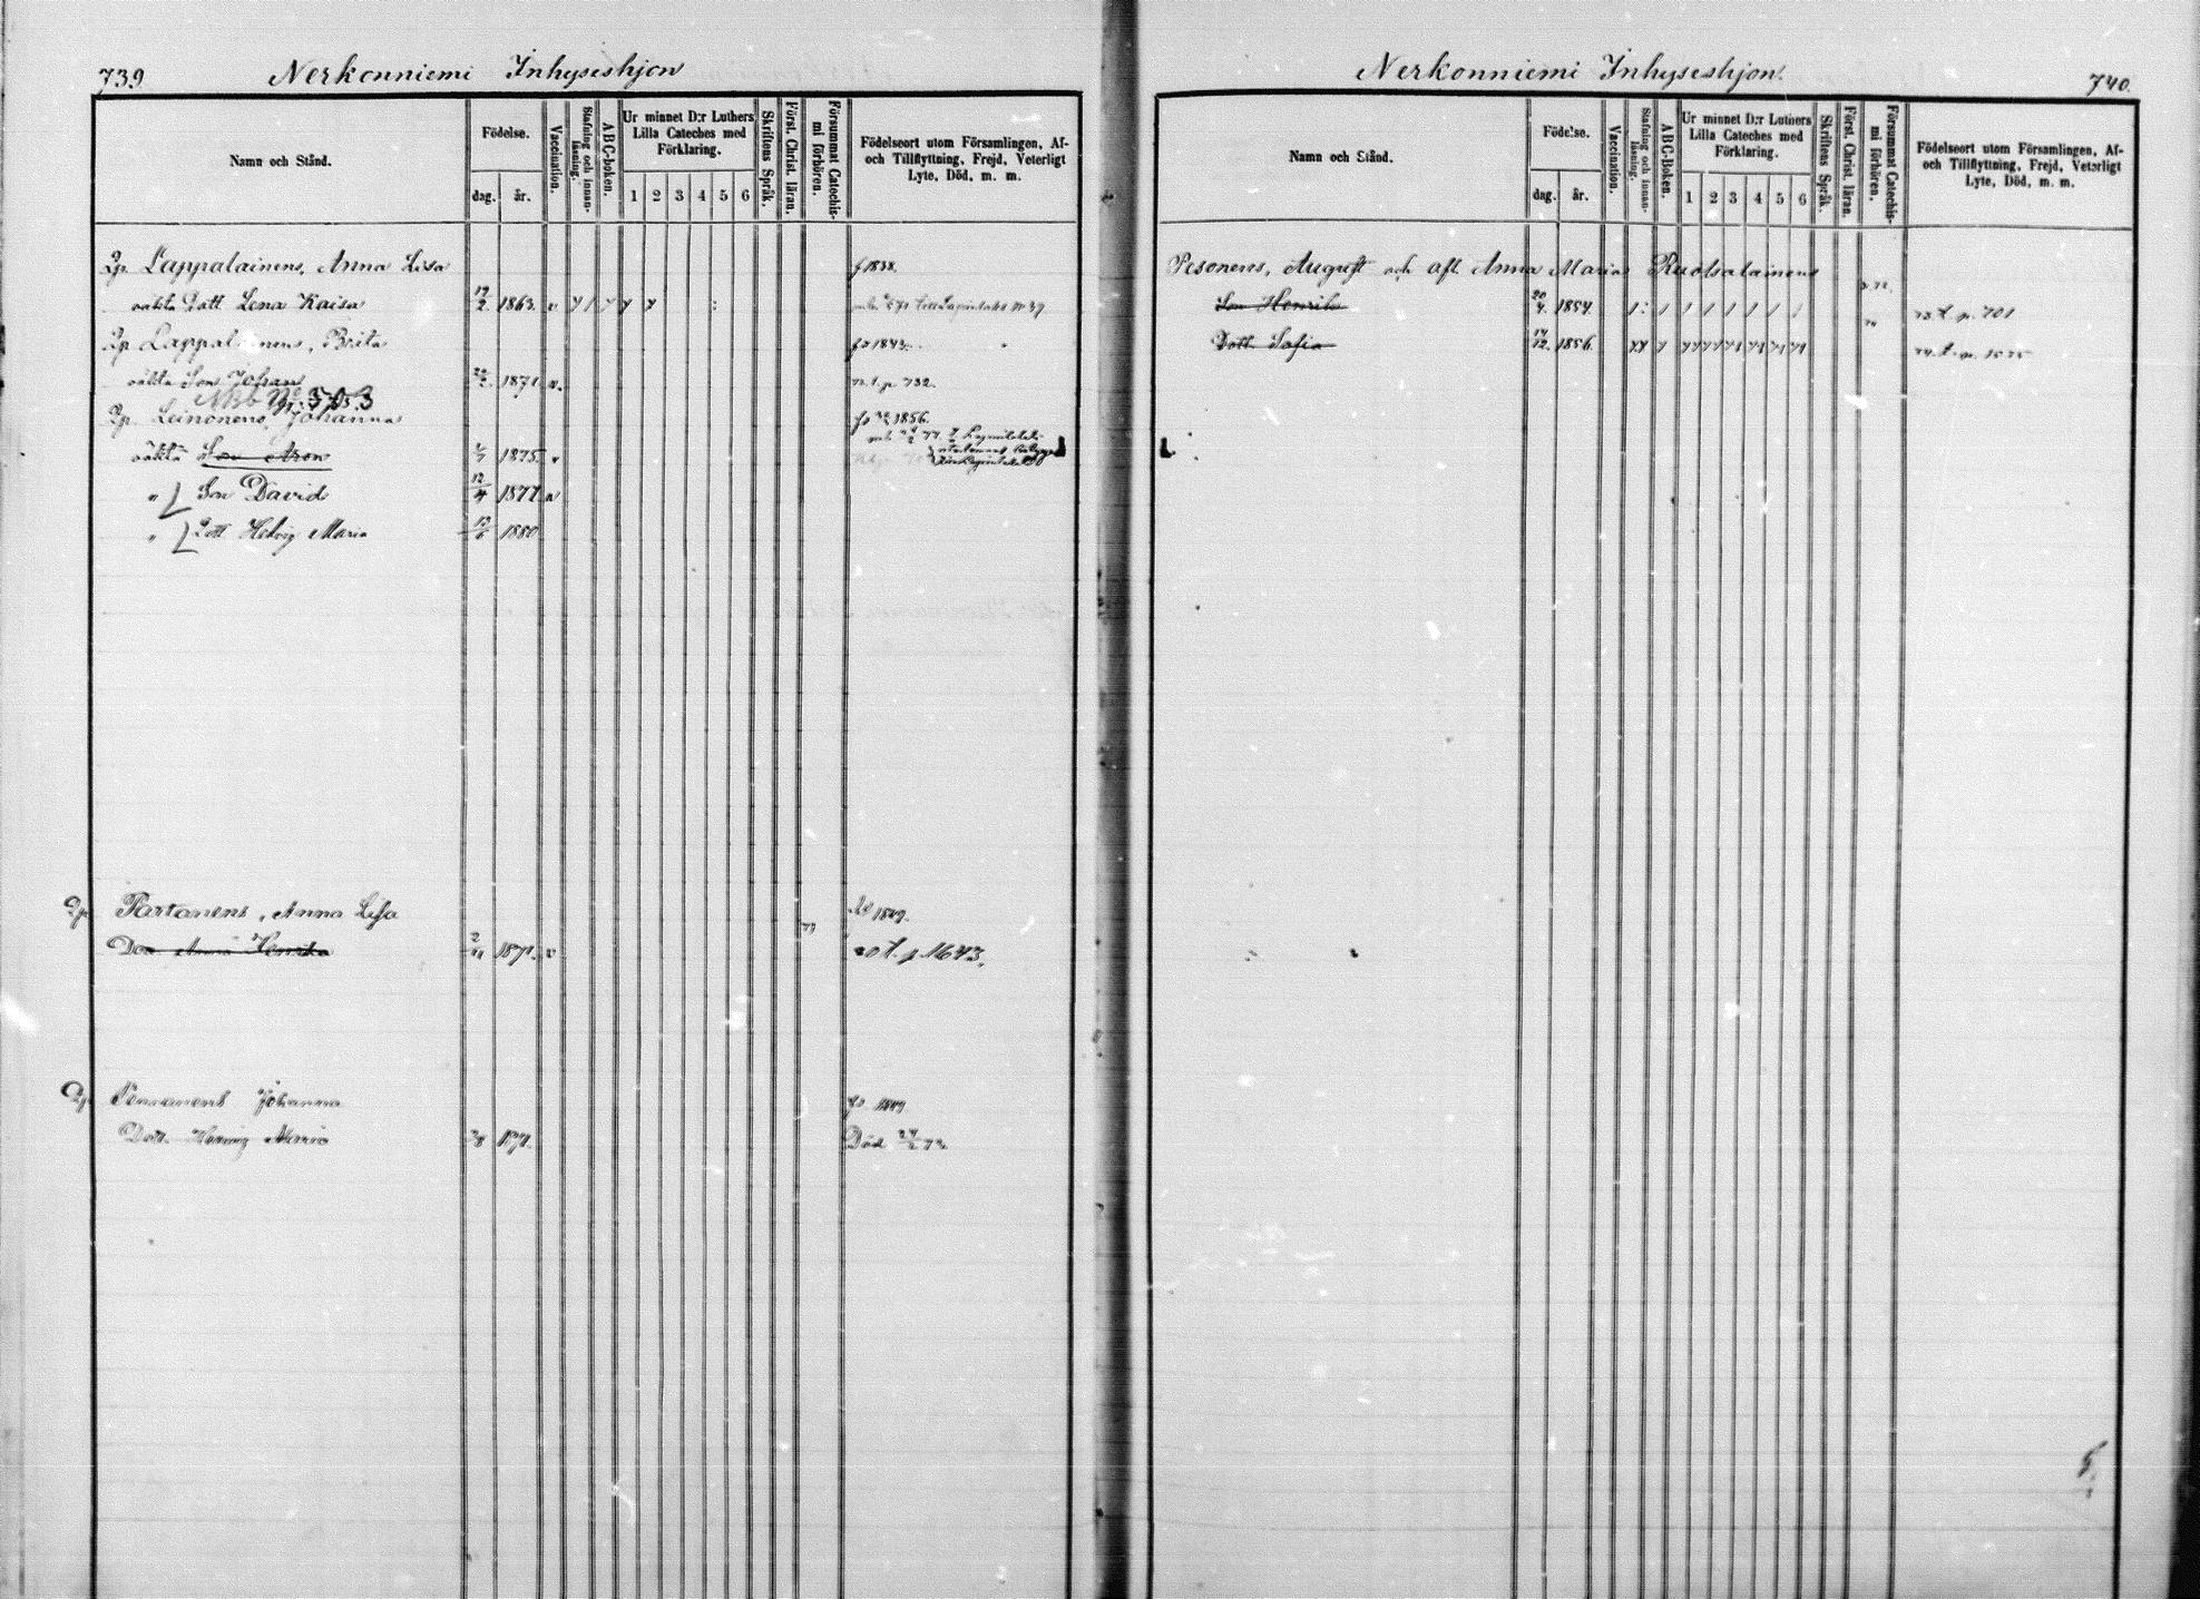 739 Nerkonniemi Inhyseshjon
Namn och Stånd. Födelse. dag. år. Vaccination. Stafning och innanläsning. ABC-boken. Ur minnet D:r Luthers Lilla Cateches med Förklaring. 1 2 3 4 5 6 Skriftens Språk. Först. Christ. läran. Försummat Catechismi förhören. Födelseort utom Församlingen, Af- och Tillflyttning, Frejd, Veterligt Lyte, Död, m. m.
Qp. Lappalainens, Anna Lisa f 1838.
oäkta Dott Lena Kaisa 19/2. 1863. v
Qp Lappalainens, Brita fö 1843.
oäkta Son Johan 1871. v. p 732.
Qp. Leinonens, Johanna fö 1856.
oäkta Son Aron 1875. v
" Son David 12/4 1877 v
" Dott Hedvig Maria 13/6 1880
Qp Partanens, Anna Lisa 1849.
Dor Anna Henrika 2/11 1871. v t. p 1643.
Qp Johanna fö 1849
Dott. Maria 1871. Död
Nerkonniemi Inhyseshjon. 740.
Namn och Stånd. Födelse. dag. år. Vaccination. Stafning och innanläsning. ABC-boken. Ur minnet D:r Luthers Lilla Cateches med Förklaring. 1 2 3 4 5 6 Skriftens Språk. Först. Christ. läran. Försummat Catechismi förhören. Födelseort utom Församlingen, Af- och Tillflyttning, Frejd, Veterligt Lyte, Död, m. m.
Pesonens, August och afl. Anna Maria Ruotsalainens
Son Henrik 20/4. 1854. t. p. 701
Dott. Sofia 14/12. 1856. t. p. 1575